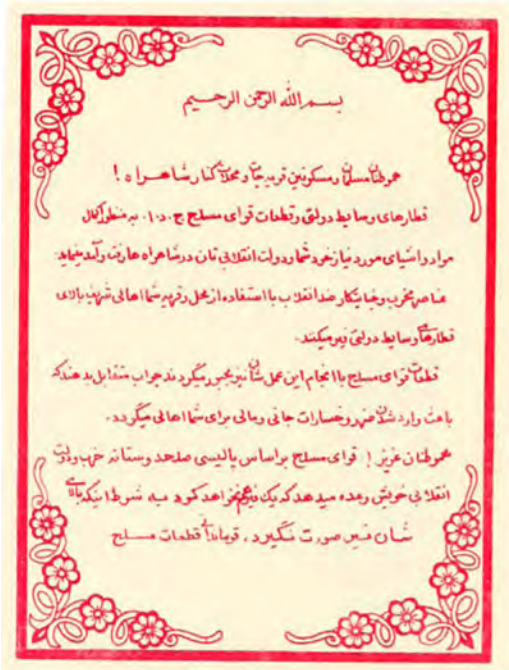 بسم الله الرحمن الرحیم
هموطنان مسلمان و مسکونین قریه جات و محلات کنار شاهراه !
قطارهای وسایط دولتی و قطعات قوای مسلح ج . د . ا . به منظور اکمال
مواد و اشیای مورد نیاز خود شما و دولت انقلابی تان در شاهراه ها رفت و آمد مینماید
عناصر مخرب و جنایتکار ضد انقلاب با استفاده از محل و قریه شما اهالی شریف بالای
قطارهای وسایط دولتی فیر میکنند .
قطعات قوای مسلح با انجام این عمل شان نیز مجبور میگردند جواب متقابل بدهند که
باعث وارد شدن ضرر و خسارات جانی و مالی برای شما اهالی میگردد .
هموطنان عزیز ! قوای مسلح براساس پالیسی صلحدوستانه حزب و دولت
انقلابی خویش وعده میدهد که یک فیر هم نخواهد کرد به شرط اینکه بالای
شان فیر صورت نگیرد . قوماندانی قطعات مسلح